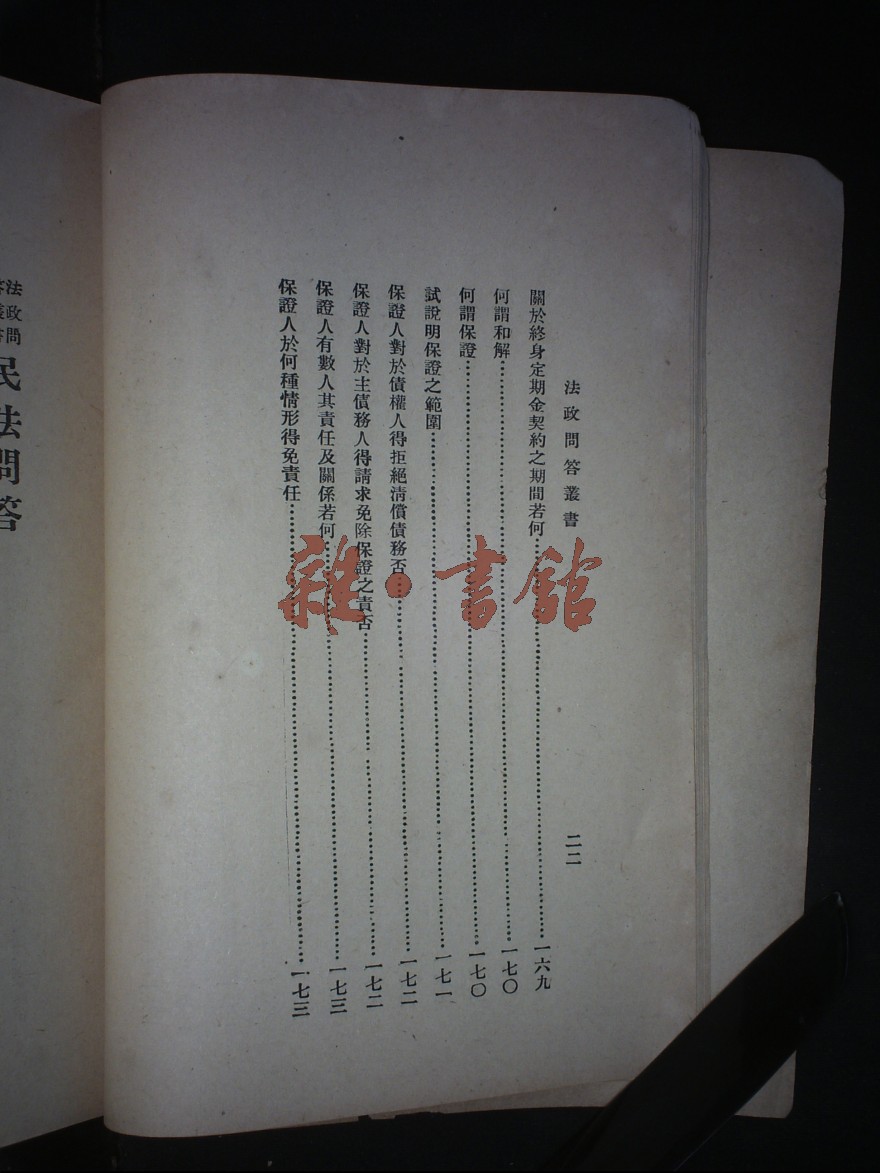 法政問答叢書
二二
關於終身定期金契約之期間若何……一六九
何謂和解……一七〇
何謂保證……一七〇
試說明保證之範圍……一七一
保證人對於債權人得拒絕清償債務否……一七二
保證人對於主債務人得請求免除保證之責否……一七二
保證人有數人其責任及關係若何……一七三
保證人於何種情形得免責任……一七三
法政問
民法問答
雜·書館